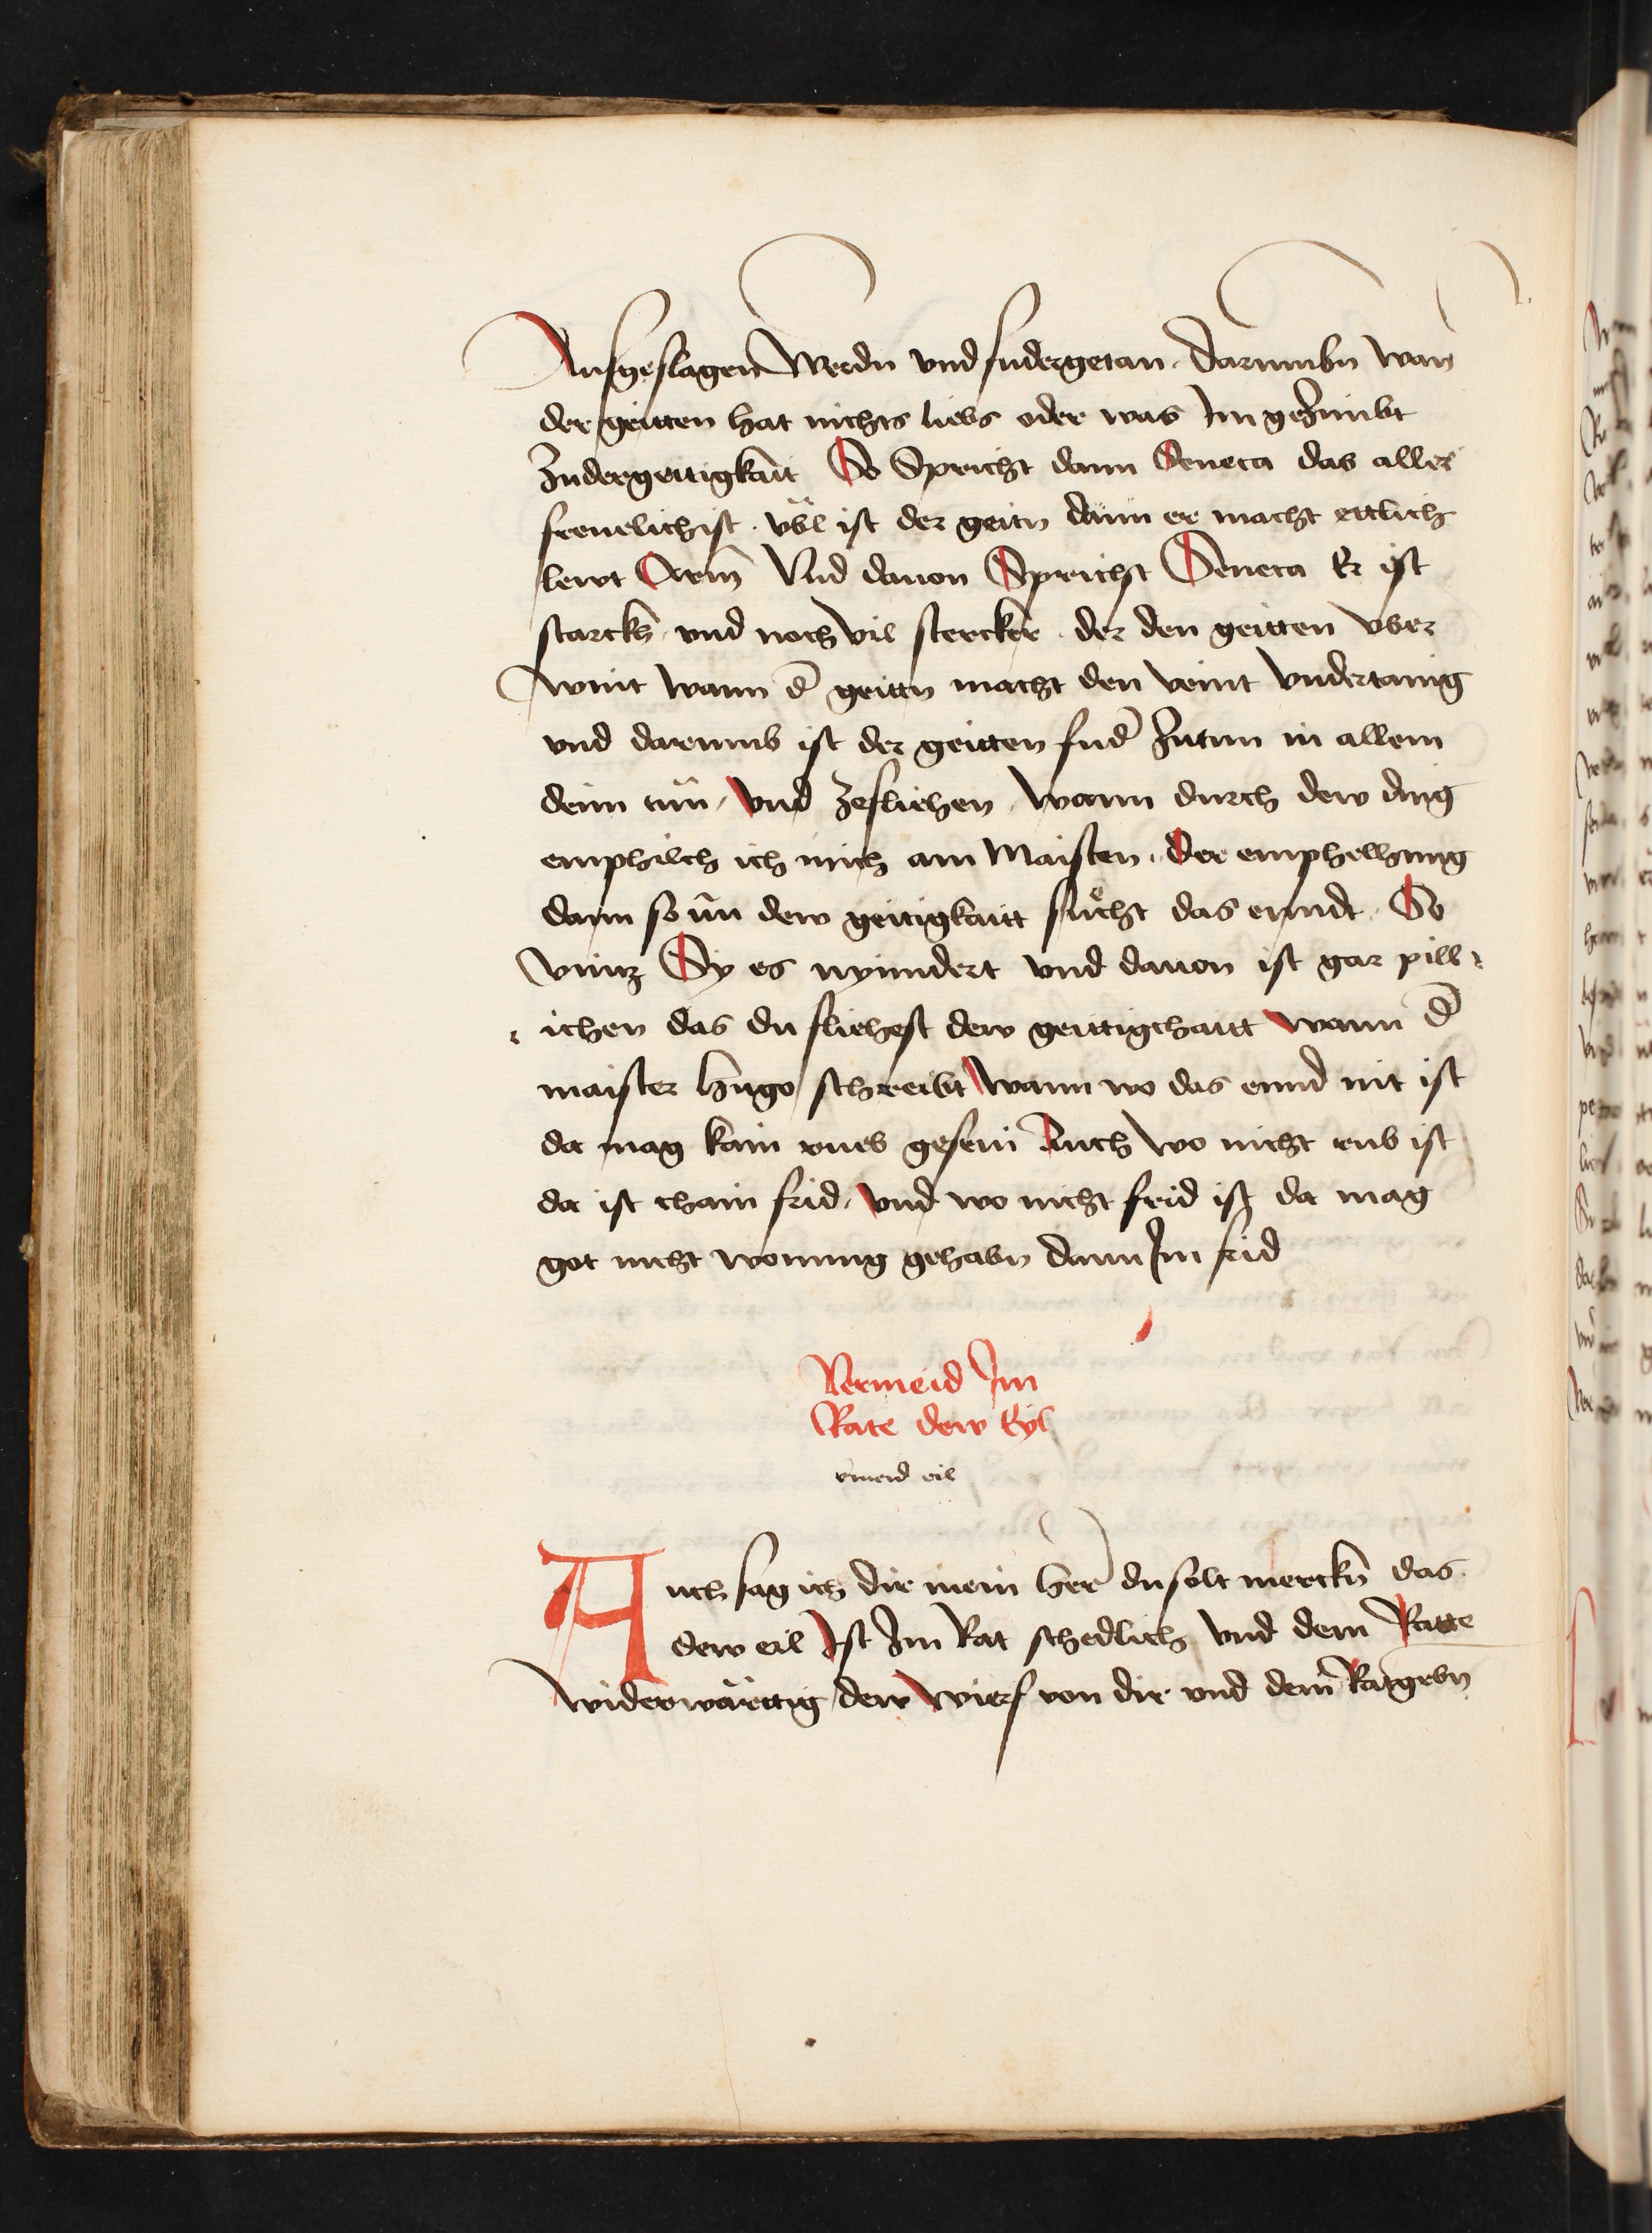 Ausgeslagen Werdn vnd sudergetan · darumbn wan
der geitten hat nichts liebs oder was Im geZimbt
Zudergeittigkait So Spricht dann Seneca das aller
freuelichist · vbl ist der geitn dann er macht ettlich
lewt Arm Vnd dauon Spricht Seneca Er ist
starckh · vnd noch vil stercker · der den geitten vber
wint wann d geittn macht den veint vndertanig
vnd darumb ist der geitten sud Zutun in allem
deim tun · vnd Zefliehen · wann durch dew ding
emphilch ich mich am Maisten · der emphelhung
dann so nu dew geitigkaitt sucht das enndt · So
vintz Sy es nyindert vnd dauon ist gar pill
ichen das du fliehest dew geittigchaitt wann d
maister hugo schreibt wann wo das ennd nit ist
da mag kain rueb gesein Auch wo nicht rub ist
da ist chain frid · vnd wo nicht frid ist da mag
got nicht wonung gehabn dann Im frid
Vermeid Im
Rate dew Eyl
vmeid eil
Auch sag ich dir mein her du solt merckn das
dew eil Ist Im Rat schedlich vnd dem Ratte
widerwarttig dew wierf von dir vnd dem Ratgebn